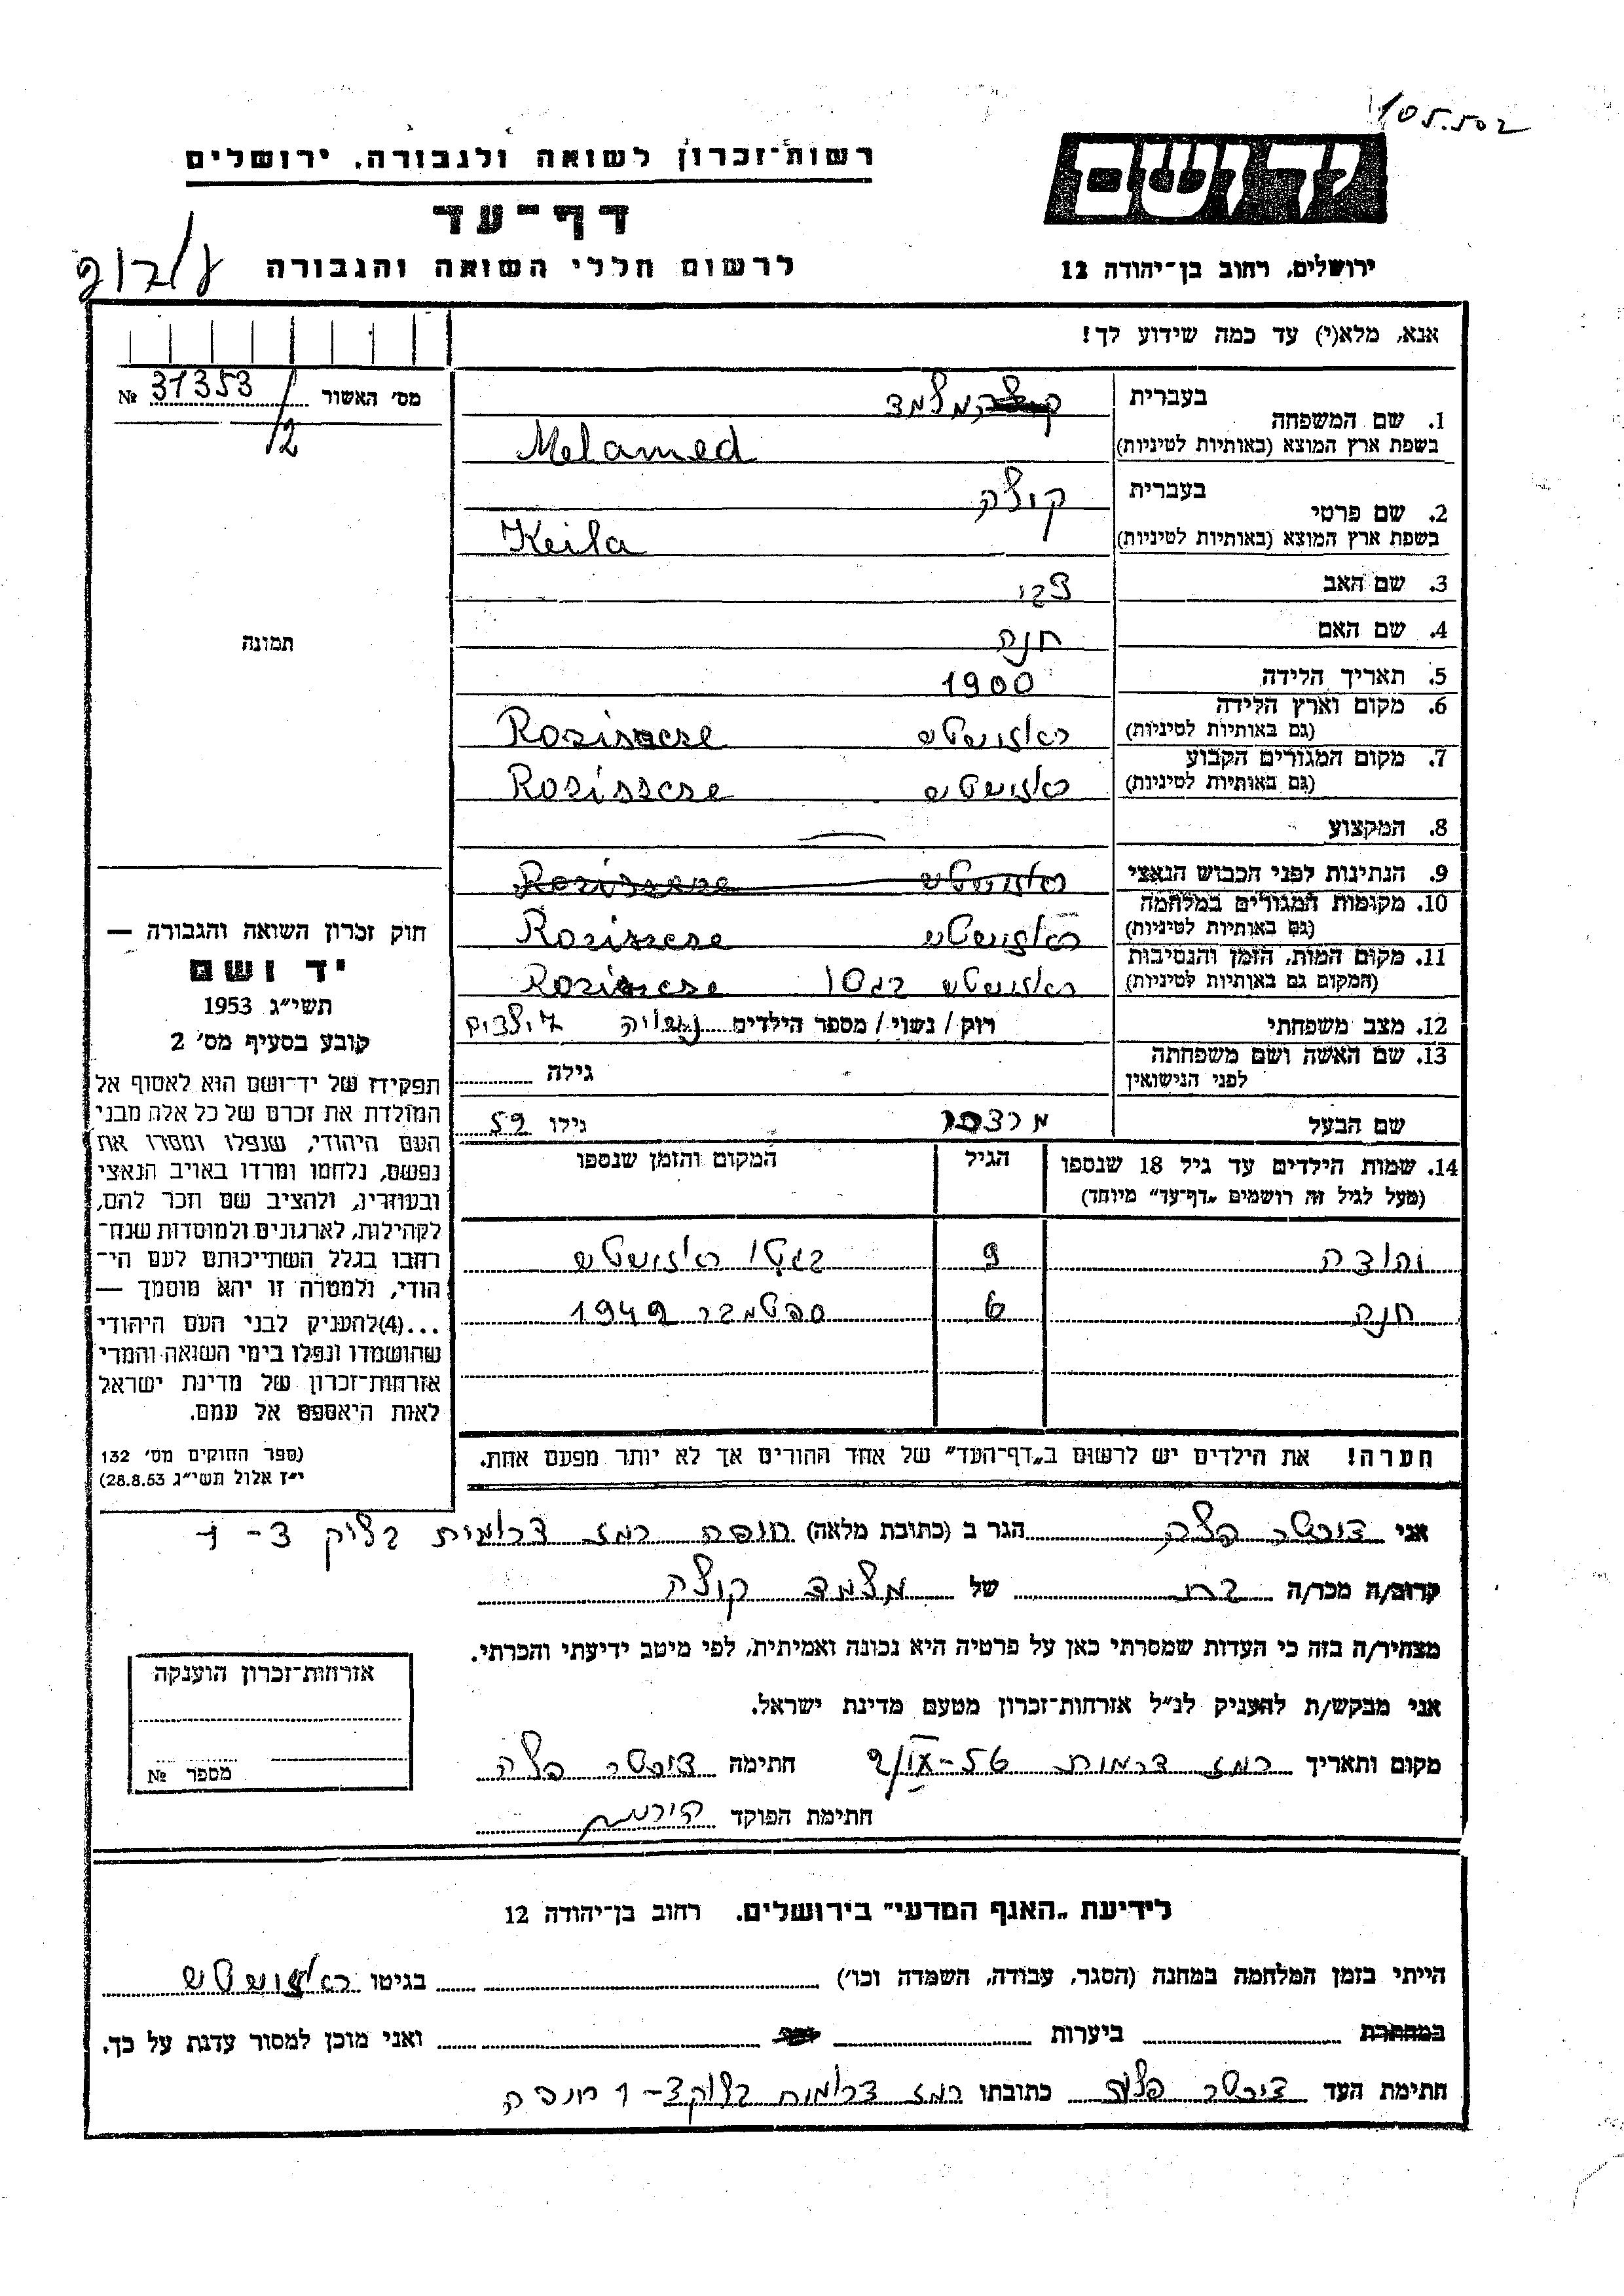 105.502
רשות־זכרון לשואה ולגבורה, ירושלים
יד ושם
דף־עד
לרשום חללי השואה והגבורה
ירושלים, רחוב בן־יהודה 12
אנא, מלא(י) עד כמה שידוע לך!
מס׳ האשור № 31353/12
1. שם המשפחה
בעברית מלמד
בשפת ארץ המוצא (באותיות לטיניות) Melamed
2. שם פרטי
בעברית קילה
בשפת ארץ המוצא (באותיות לטיניות) Keila
3. שם האב צבי
4. שם האם חנה
5. תאריך הלידה 1900
6. מקום וארץ הלידה
(גם באותיות לטיניות) ראזישטש
7. מקום המגורים הקבוע
(גם באותיות לטיניות) ראזישטש Roziszcse
8. המקצוע
9. הנתינות לפני הכבוש הנאצי
10. מקומות המגורים במלחמה
(גם באותיות לטיניות) ראזישטש Roziszcse
11. מקום המות, הזמן והנסיבות
(המקום גם באותיות לטיניות) ראזישטש בגטו
12. מצב משפחתי רוק / נשוי / מספר הילדים נשואה 7 ילדים
13. שם האשה ושם משפחתה
לפני הנישואין גילה
שם הבעל גילו 59
14. שמות הילדים עד גיל 18 שנספו
(מעל לגיל זה רושמים „דף־עד״ מיוחד) הגיל המקום והזמן שנספו
יהודה 9 בגטו ראזישטש
חנה 6 ספטמבר 1949
הערה! את הילדים יש לרשום ב„דף־העד״ של אחד ההורים אך לא יותר מפעם אחת.
תמונה
חוק זכרון השואה והגבורה —
יד ושם
תשי״ג 1953
קובע בסעיף מס׳ 2
תפקידו של יד־ושם הוא לאסוף אל
המולדת את זכרם של כל אלה מבני
העם היהודי, שנפלו ומסרו את
נפשם, נלחמו ומרדו באויב הנאצי
ובעוזריו, ולהציב שם וזכר להם,
לקהילות, לארגונים ולמוסדות שנח־
רבו בגלל השתייכותם לעם הי־
הודי, ולמטרה זו יהא מוסמך —
...(4)להעניק לבני העם היהודי
שהושמדו ונפלו בימי השואה והמרי
אזרחות־זכרון של מדינת ישראל
לאות היאספם אל עמם.
(ספר החוקים מס׳ 132
י״ז אלול תשי״ג 28.8.53)
אני הגר ב (כתובת מלאה) חיפה רמז דרומית בלוק צ-1
קרוב/ה מכר/ה בת של מלמד קילה
מצהיר/ה בזה כי העדות שמסרתי כאן על פרטיה היא נכונה ואמיתית, לפי מיטב ידיעתי והכרתי.
אני מבקש/ת להעניק לנ״ל אזרחות־זכרון מטעם מדינת ישראל.
מקום ותאריך רמז חתימה
חתימת הפוקד
אזרחות־זכרון הוענקה
מספר №
לידיעת „האגף המדעי״ בירושלים. רחוב בן־יהודה 12
הייתי בזמן המלחמה במחנה (הסגר, עבודה, השמדה וכו׳) בגיטו ראזישטש
במחתרת ביערות ואני מוכן למסור עדות על כך.
חתימת העד כתובתו רמז דרומית בלוק צ-1 חיפה